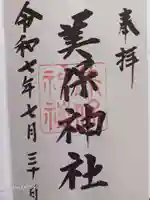 奉拝
美保神社
令和七年七月三十日